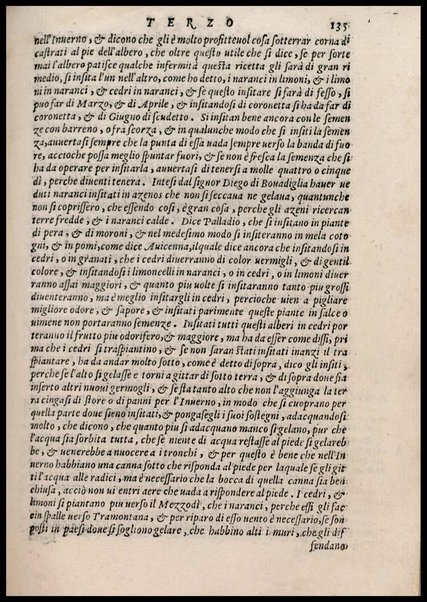 TERZO 135
nell'Inuerno, & dicono che gli è molto profitteuol cosa sotterrar corna di
castrati al pie dell'albero, che oltre questo utile che si dice, se per sorte
mai l'albero patisce qualche infermità questa ricetta gli sarà di gran ri
medio, si insita l'un nell'altro, come ho detto, i naranci in limoni, & i limo
ni in naranci, & cedri in naranci, & se questo insitare si farà di fesso, si
puo far di Marzo, & di Aprile, & insitandosi di coronetta si ha da far di
coronetta, & di Giugno di scudetto. Si insitan bene ancora con le semen
ze con barreno, o fra scorza, & in qualunche modo che si insiti la semen
za, auuertasi sempre che la punta di essa uada sempre uerso la banda di fuo
re, accioche possa meglio spuntar fuori, & se non è fresca la semenza che si
ha da operare per insitarla, auuertasi di tenersi a molle quattro o cinque
dì, perche diuenti tenera. Intesi dal signor Diego di Bouadiglia hauer ue
duti naranci insitati in azenos che non si seccaua ne gelaua, quantunche
non si coprissero, che essendo così, è gran cosa, perche gli azeni ricercan
terre fredde, & i naranci calde. Dice Palladio, che si insitano in piante
di pera, & di moroni, & nel medesimo modo si insiteranno in mela coto
gni, & in pomi, come dice Auicenna, il quale dice ancora che insitandosi in
cedri, o in granati, che i cedri diuerranno di color uermigli, & di gentil
colore, & insitandosi i limoncelli in naranci, o in cedri, o in limoni diuer
ranno assai maggiori, & quanto piu uolte si insitaranno tanto piu grossi
diuenteranno, ma è meglio insitargli in cedri, percioche uien a pigliare
migliore odore, & sapore, & insitati parimente queste piante in salce o
uimene non portaranno semenze. Insitati tutti questi alberi in cedri por
teranno il frutto piu odorifero, & maggiore, ma ha da esser come dissi, pri
ma che i cedri si traspiantino, & se non saran stati insitati inanzi il tra
spiantare, ha da andar molto sotto, come è detto di sopra, dico gli insiti,
perche se l'alto si gelasse e torni a gittar di sotto terra, & di sopra doue sia
inserto altri nuoui germogli, & se sta tanto alto che non l'aggiunga la ter
ra cingasi di stoore o di panni per l'Inuerno, in modo che si cuoprano per
quella parte doue sieno insitati, & pongasegli i suoi sostegni, adacquandosi
molto, che dicono, che quanto piu si adacquano manco si gelano, pur che
l'acqua sia sorbita tutta, che se niente di acqua restasse al piede si gelareb
be, & uenerebbe a nuocere a i tronchi, & per questo è bene che nell'In
uerno habbiano una canna sotto che risponda al piede per laquale se gli git
ti l'acqua alle radici, ma è necessario che la bocca di quella canna sia ben
chiusa, acciò non ui entri aere che uada a rispondere al piede. I cedri, &
limoni si piantano piu uerso il Mezzodì, che i naranci, perche essi gli fac
cin spalle uerso Tramontana, & per riparo di esso uento è necessario, se son
posti in paesi doue si sogliono gelare, che habbino alti i muri, che gli dif
fendano